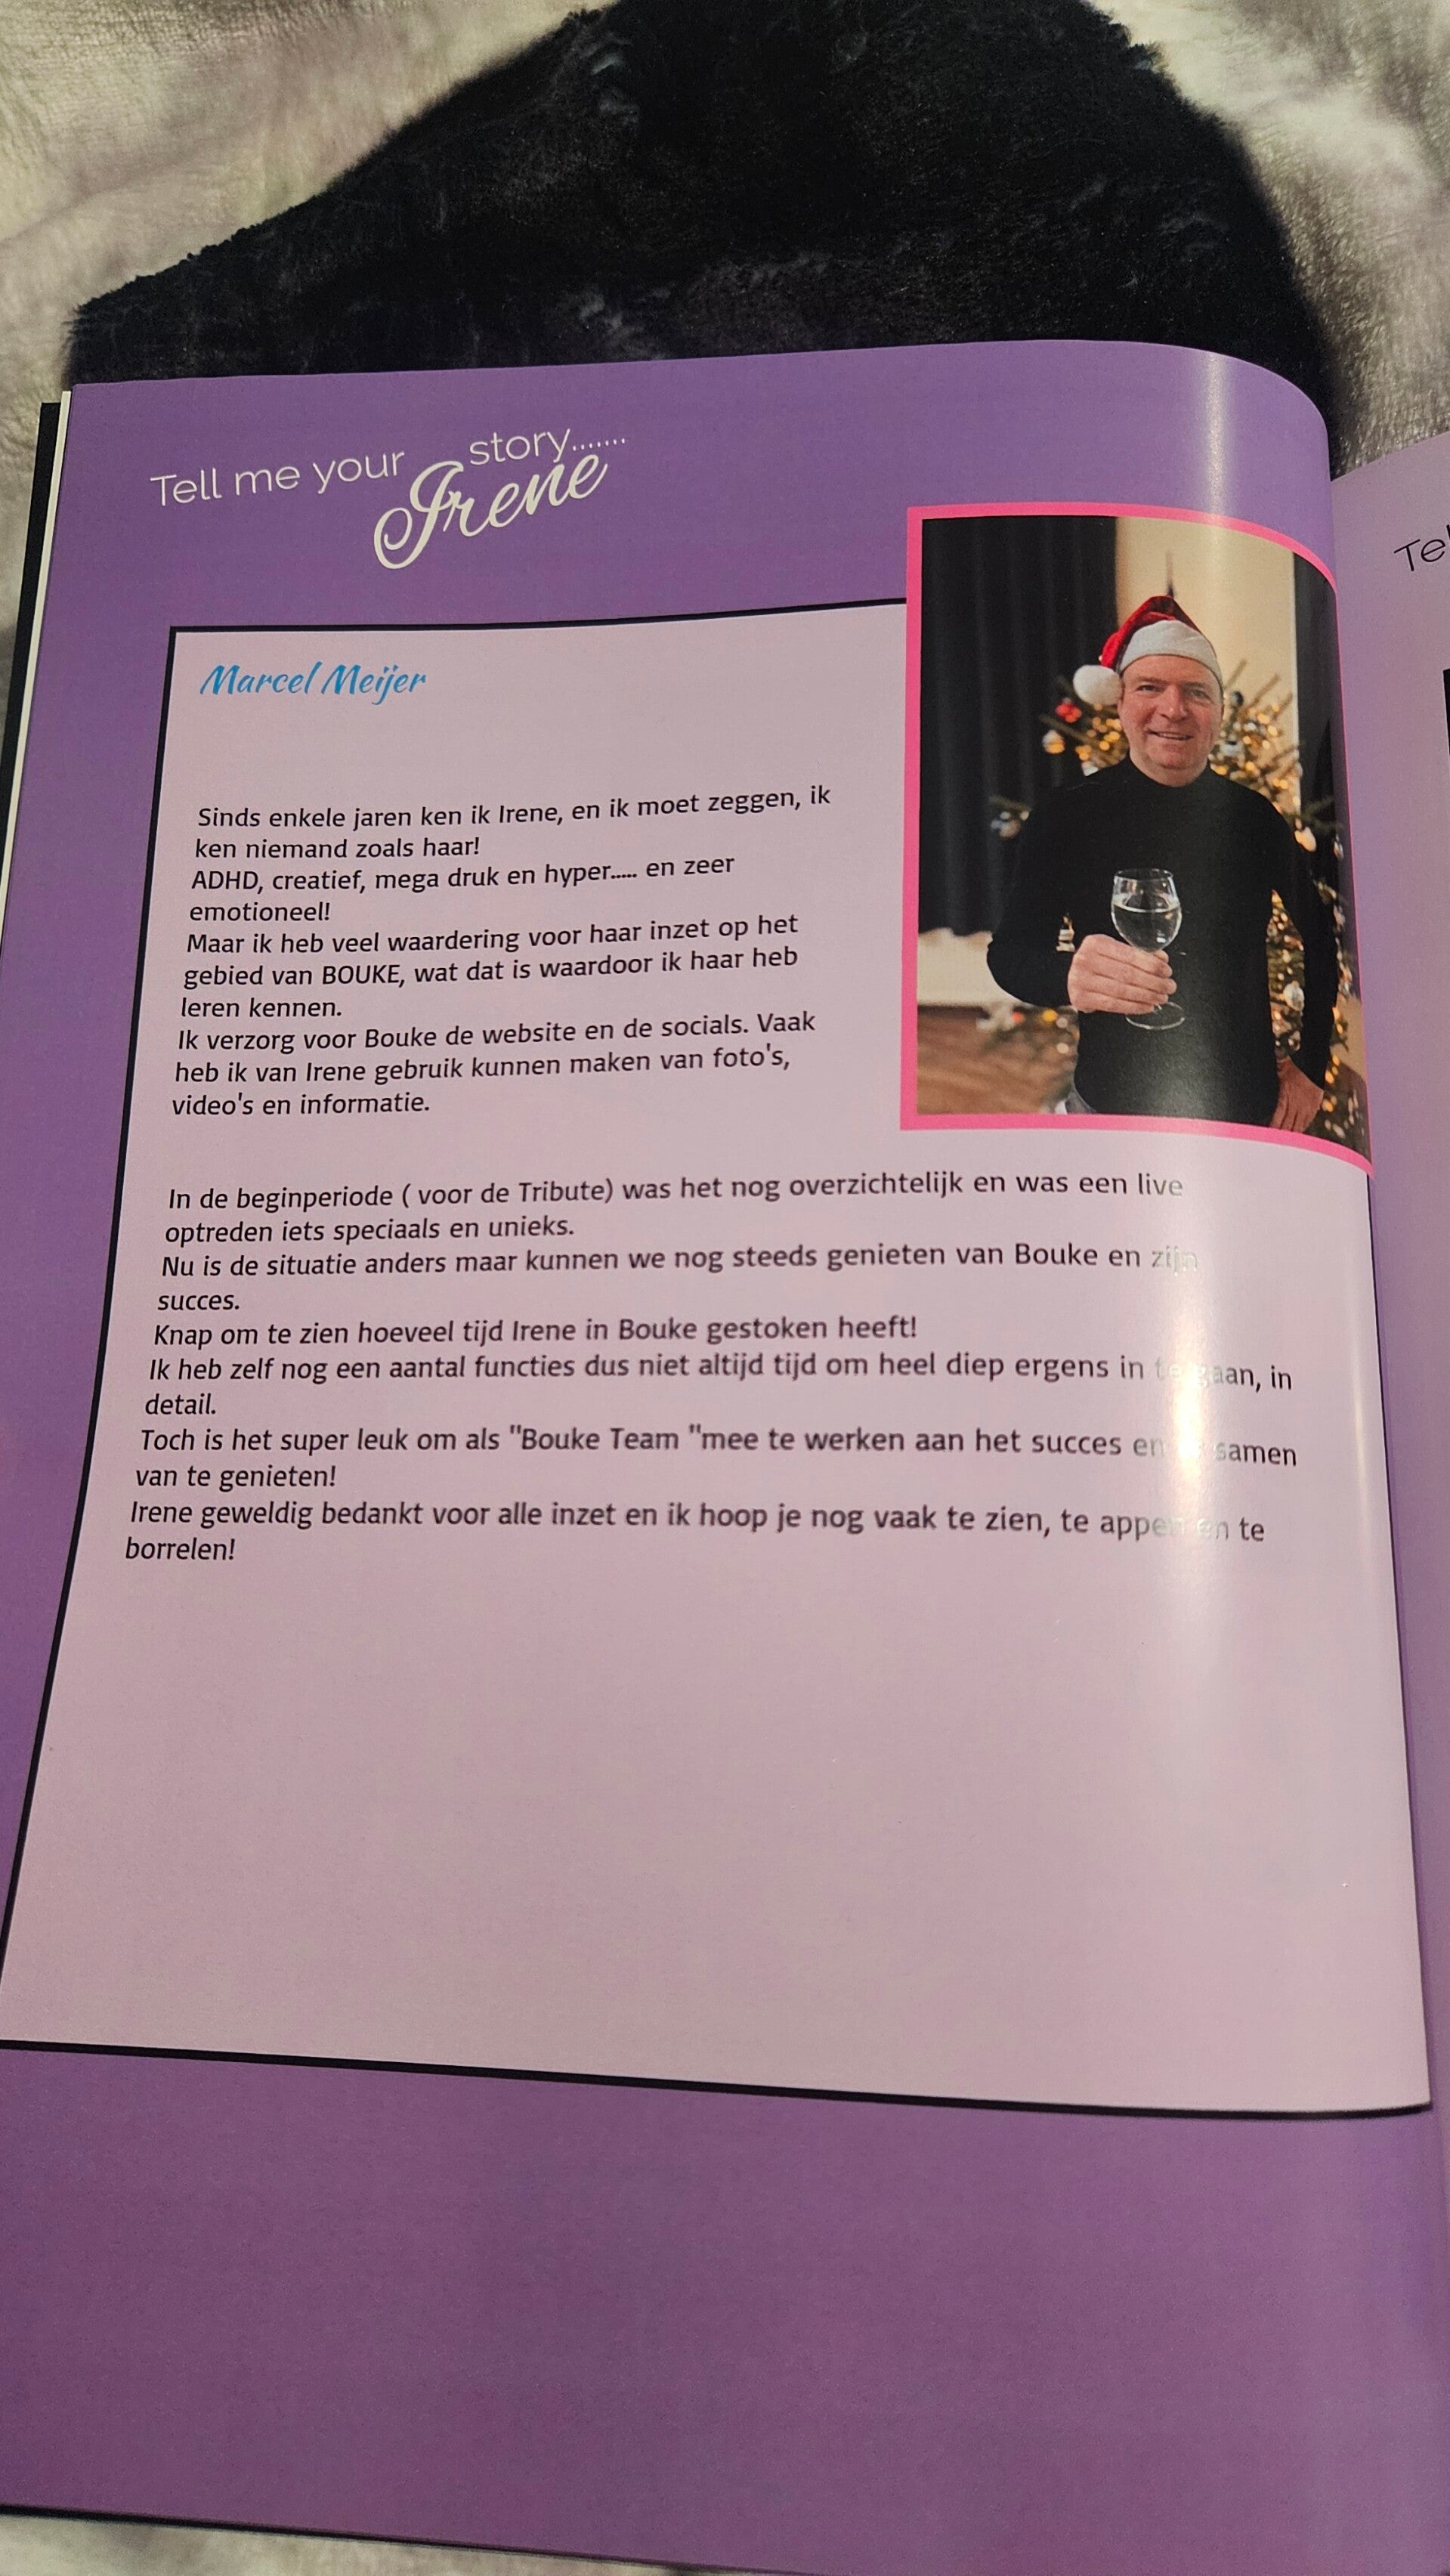 Tell me your story.......
Irene
Te
Marcel Meijer
Sinds enkele jaren ken ik Irene, en ik moet zeggen, ik
ken niemand zoals haar!
ADHD, creatief, mega druk en hyper..... en zeer
emotioneel!
Maar ik heb veel waardering voor haar inzet op het
gebied van BOUKE, wat dat is waardoor ik haar heb
leren kennen.
Ik verzorg voor Bouke de website en de socials. Vaak
heb ik van Irene gebruik kunnen maken van foto's,
video's en informatie.
In de beginperiode ( voor de Tribute) was het nog overzichtelijk en was een live
optreden iets speciaals en unieks.
Nu is de situatie anders maar kunnen we nog steeds genieten van Bouke en zijn
succes.
Knap om te zien hoeveel tijd Irene in Bouke gestoken heeft!
Ik heb zelf nog een aantal functies dus niet altijd tijd om heel diep ergens in te gaan, in
detail.
Toch is het super leuk om als "Bouke Team "mee te werken aan het succes en samen
van te genieten!
Irene geweldig bedankt voor alle inzet en ik hoop je nog vaak te zien, te appen en te
borrelen!